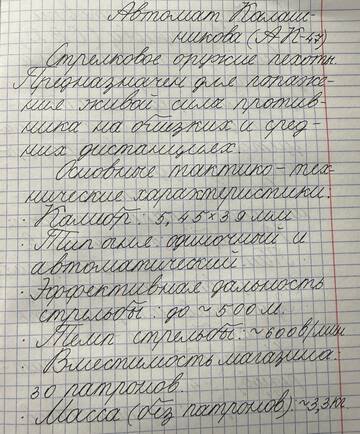 Автомат Калаш-
никова (АК-47)
Стрелковое оружие пехоты.
Предназначен для пораже-
ние живой сила против-
ника на близких и сред-
них дистанциях.
Основные тактико-тех-
нические характеристики:
· Калибр: 5,45×39 мм
· Тип огня: одиночный и
автоматический
· Эффективная дальность
стрельбы: до ~ 500 м.
· Темп стрельбы: ~ 600 в/мин
· Вместимость магазина:
30 патронов.
· Масса (без патронов): ~3,3 кг